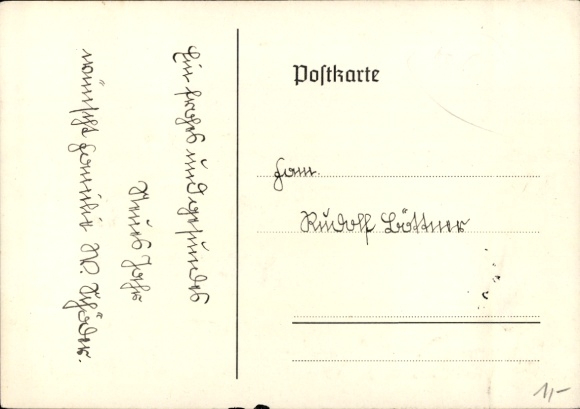 Ein frohes und gesundes
Neues Jahr
wünscht Familie W. Schröder.
Postkarte
Fam.
Rudolf Böttner
1,-